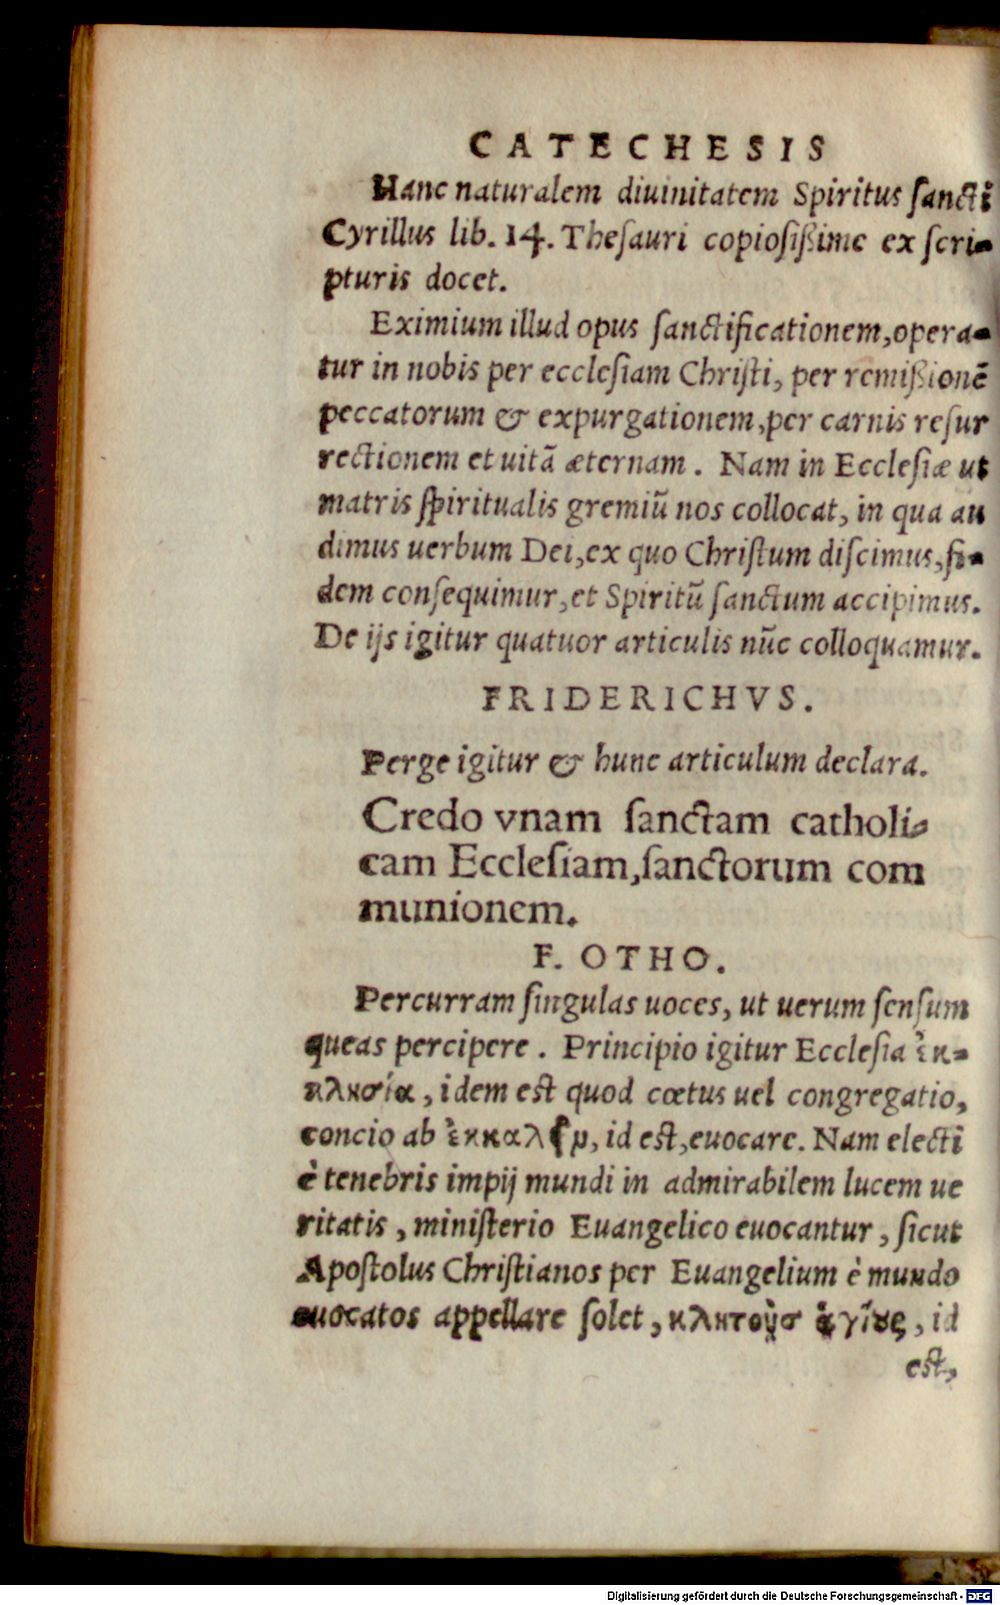 CATECHESIS
Hanc naturalem diuinitatem Spiritus ſancti
Cyrillus lib. 14. Theſauri copioſißime ex ſcri-
pturis docet.
Eximium illud opus ſanctificationem, opera-
tur in nobis per eccleſiam Chriſti, per remißionē
peccatorum & expurgationem, per carnis reſur
rectionem et uitā æternam. Nam in Eccleſiæ ut
matris ſpiritualis gremiū nos collocat, in qua au
dimus uerbum Dei, ex quo Chriſtum diſcimus, fi-
dem conſequimur, et Spiritū ſanctum accipimus.
De ijs igitur quatuor articulis nūc colloquamur.
FRIDERICHVS.
Perge igitur & hunc articulum declara.
Credo vnam ſanctam catholi-
cam Eccleſiam, ſanctorum com
munionem.
F. OTHO.
Percurram ſingulas uoces, ut uerum ſenſum
queas percipere. Principio igitur Eccleſia ἐκ-
κλησία, idem est quod cœtus uel congregatio,
concio ab ἐκκαλεῖν, id est, euocare. Nam electi
è tenebris impij mundi in admirabilem lucem ue
ritatis, miniſterio Euangelico euocantur, ſicut
Apoſtolus Chriſtianos per Euangelium è mundo
euocatos appellare ſolet, κλητοὺσ ἁγίους, id
est,
Digitalisierung gefördert durch die Deutsche Forschungsgemeinschaft - DFG